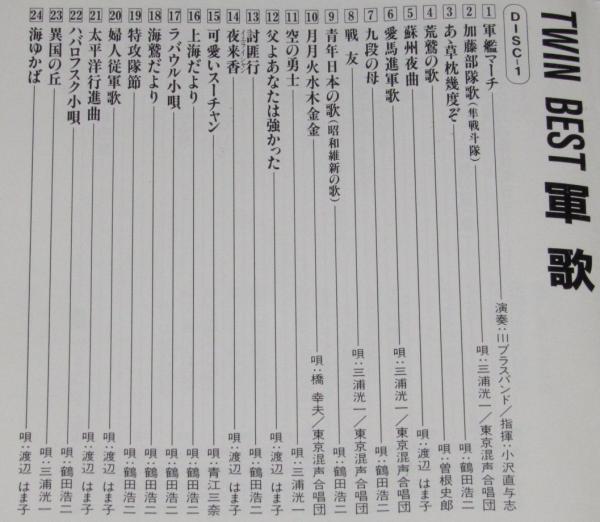 TWIN BEST 軍歌
DISC-1
1 軍艦マーチ 演奏:IIIブラスバンド/指揮:小沢直与志
2 加藤部隊歌(隼戦斗隊) 唄:三浦洸一/東京混声合唱団
3 あゝ草枕幾度ぞ 唄:鶴田浩二
4 荒鷲の歌 唄:曽根史郎
5 蘇州夜曲 唄:渡辺はま子
6 愛馬進軍歌 唄:三浦洸一/東京混声合唱団
7 九段の母 唄:鶴田浩二
8 戦友 唄:三浦洸一/東京混声合唱団
9 青年日本の歌(昭和維新の歌) 唄:鶴田浩二
10 月月火水木金金 唄:橋 幸夫/東京混声合唱団
11 空の勇士 唄:三浦洸一
12 父よあなたは強かった 唄:渡辺はま子
13 討匪行 唄:鶴田浩二
14 夜来香 唄:渡辺はま子
15 可愛いスーチャン 唄:青江三奈
16 上海だより 唄:鶴田浩二
17 ラバウル小唄 唄:鶴田浩二
18 海鷲だより 唄:鶴田浩二
19 特攻隊節 唄:鶴田浩二
20 婦人従軍歌 唄:渡辺はま子
21 太平洋行進曲 唄:渡辺はま子
22 ハバロフスク小唄 唄:鶴田浩二
23 異国の丘 唄:三浦洸一
24 海ゆかば 唄:渡辺はま子